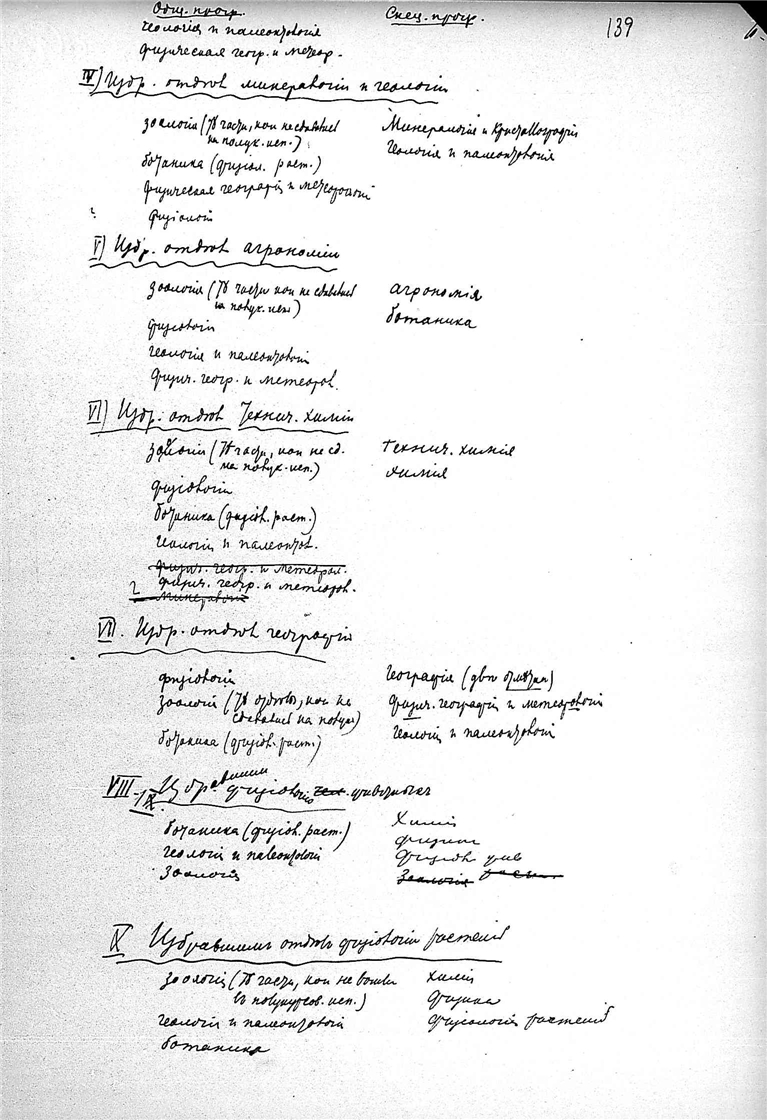 Общ. прогр. Спец. прогр. 139
геологія и палеонтологія
физическая геогр. и метеор.
IV) Избр. отдѣл минералогіи и геологіи
зоологія (тѣ части, кои не сдавались Минералогія и Кристаллографія
на полук. исп.) геологія и палеонтологія
ботаника (физіол. раст.)
физическая географія и метеорологія
физіологія
V) Избр. отдѣл агрономіи
зоологія (тѣ части кои не сдавались агрономія
на полук. исп.) ботаника
физіологія
геологія и палеонтологія
физич. геогр. и метеорол.
VI) Избр. отдѣл технич. химіи
зоологія (тѣ части, кои не сд. технич. химія
на полук. исп.) химія
физіологія
ботаника (физіол. раст.)
геологія и палеонтол.
физич. геогр. и метеорол.
физич. геогр. и метеорол.
? минералогія
VII. Избр. отдѣл географіи
физіологія географія (двѣ отмѣтки)
зоологія (тѣ отдѣлы, кои не физич. географія и метеорологія
сдавались на полук.) геологія и палеонтологія
ботаника (физіол. раст.)
VIII. Избравшим физіологію животных
IX.
ботаника (физіол. раст.) химія
геологія и палеонтологія физика
зоологія физіол. жив.
зоологія раст.
IX Избравшимъ отдѣлъ физіологіи растеній
зоологія (тѣ части, кои не вошли химія
въ полукурсов. исп.) физика
геологія и палеонтологія физіологія растеній
ботаника